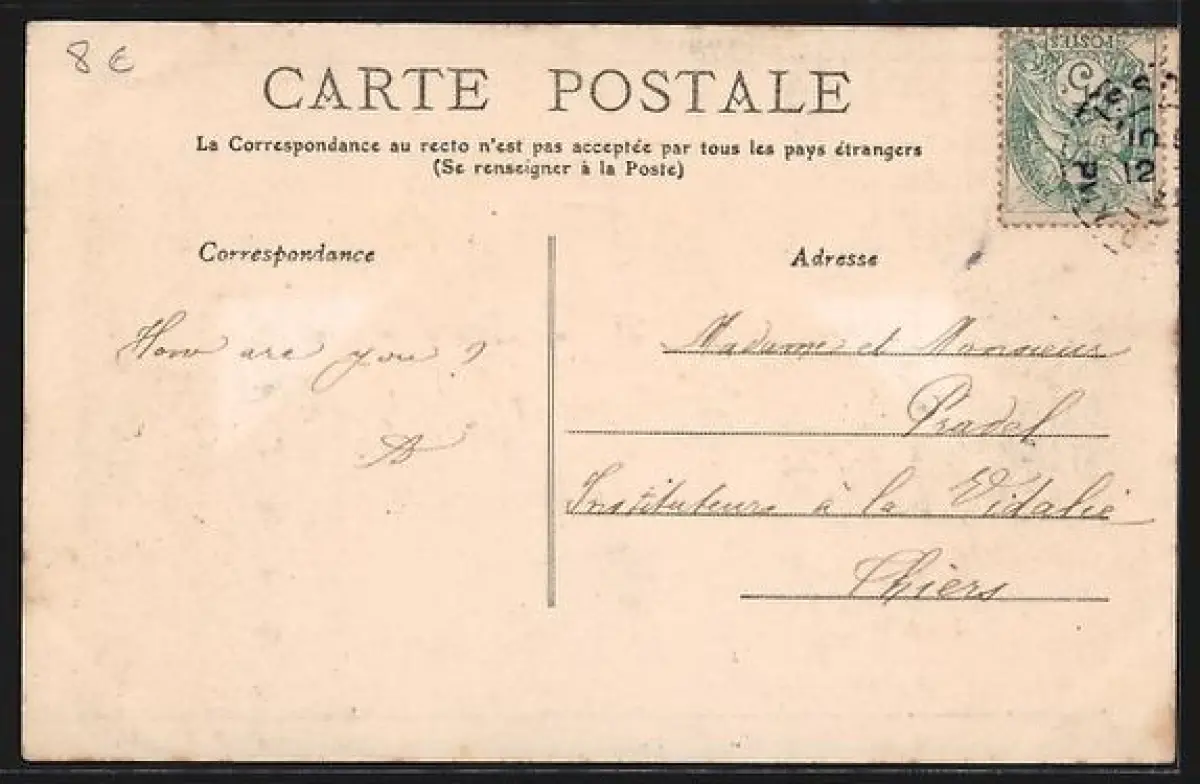 8 €
CARTE POSTALE
La Correspondance au recto n'est pas acceptée par tous les pays étrangers
(Se renseigner à la Poste)
POSTES
5
12
Correspondance
Adresse
How are you ?
AB
Madame et Monsieur
Pradal
Instituteurs à la Vidalie
Thiers